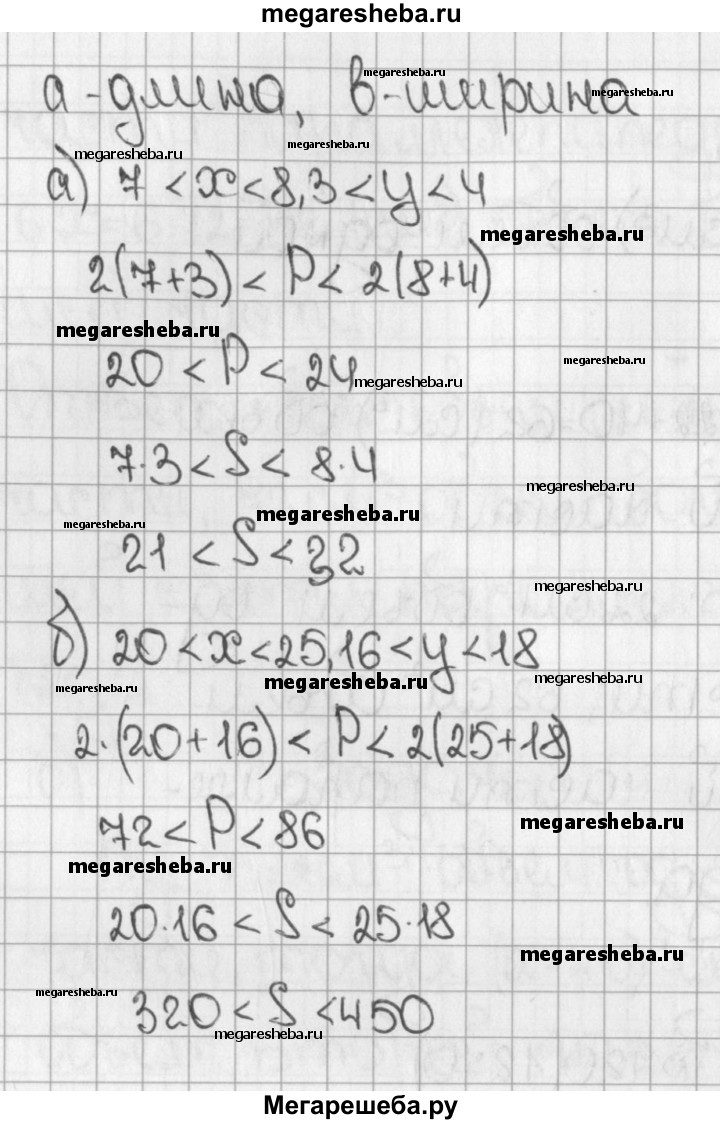 megaresheba.ru
megaresheba.ru
а - длина, в - ширина
megaresheba.ru
megaresheba.ru
megaresheba.ru
а) 7 < x < 8, 3 < y < 4
megaresheba.ru
2(7+3) < P < 2(8+4)
megaresheba.ru
megaresheba.ru
20 < P < 24
megaresheba.ru
7·3 < S < 8·4
megaresheba.ru
megaresheba.ru
megaresheba.ru
21 < S < 32
megaresheba.ru
б) 20 < x < 25, 16 < y < 18
megaresheba.ru
megaresheba.ru
megaresheba.ru
2·(20+16) < P < 2(25+18)
72 < P < 86
megaresheba.ru
megaresheba.ru
20·16 < S < 25·18
megaresheba.ru
megaresheba.ru
320 < S < 450
megaresheba.ru
Мегарешеба.ру